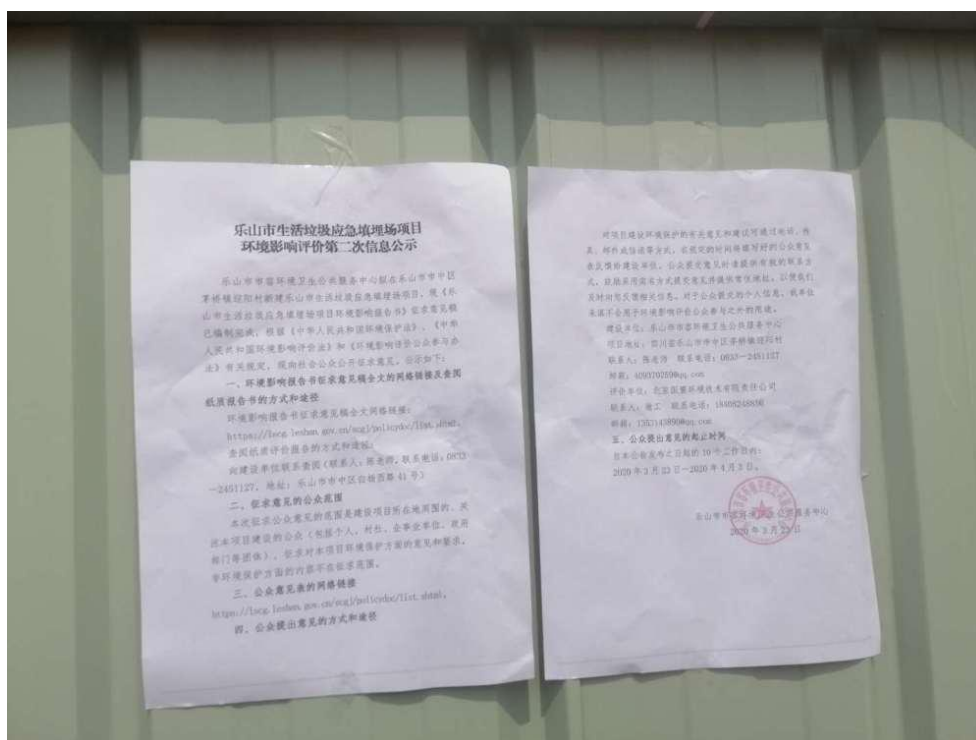 乐山市生活垃圾应急填埋场项目
环境影响评价第二次信息公示
乐山市市容环境卫生公共服务中心拟在乐山市市中区
茅桥镇迎阳村新建乐山市生活垃圾应急填埋场项目，现《乐
山市生活垃圾应急填埋场项目环境影响报告书》征求意见稿
已编制完成，根据《中华人民共和国环境保护法》、《中华
人民共和国环境影响评价法》和《环境影响评价公众参与办
法》有关规定，现向社会公众公开征求意见，公示如下：
一、环境影响报告书征求意见稿全文的网络链接及查阅
纸质报告书的方式和途径
环境影响报告书征求意见稿全文网络链接：
https://lscg.leshan.gov.cn/scgj/policydoc/list.shtml。
查阅纸质评价报告的方式和途径：
向建设单位联系查阅（联系人：陈老师，联系电话：0833
—2451127，地址：乐山市市中区白杨西路41号）
二、征求意见的公众范围
本次征求公众意见的范围是建设项目所在地周围的、关
注本项目建设的公众（包括个人、村社、企事业单位、政府
部门等团体），征求对本项目环境保护方面的意见和要求，
非环境保护方面的内容不在征求范围。
三、公众意见表的网络链接
https://lscg.leshan.gov.cn/scgj/policydoc/list.shtml。
四、公众提出意见的方式和途径
对项目建设环境保护的有关意见和建议可通过电话、传
真、邮件或信函等方式，在规定的时间将填写好的公众意见
表反馈给建设单位。公众提交意见时请提供有效的联系方
式，鼓励采用实名方式提交意见并提供常住地址，以便我们
及时向您反馈相关信息。对于公众提交的个人信息，我单位
承诺不会用于环境影响评价公众参与之外的用途。
建设单位：乐山市市容环境卫生公共服务中心
项目地址：四川省乐山市市中区茅桥镇迎阳村
联系人：陈老师 联系电话：0833—2451127
邮箱：
评价单位：北京国寰环境技术有限责任公司
联系电话：
邮箱：
五、公众提出意见的起止时间
自本公告发布之日起的10个工作日内：
2020年3月23日—2020年4月3日。
乐山市市容环境卫生公共服务中心
2020年3月23日